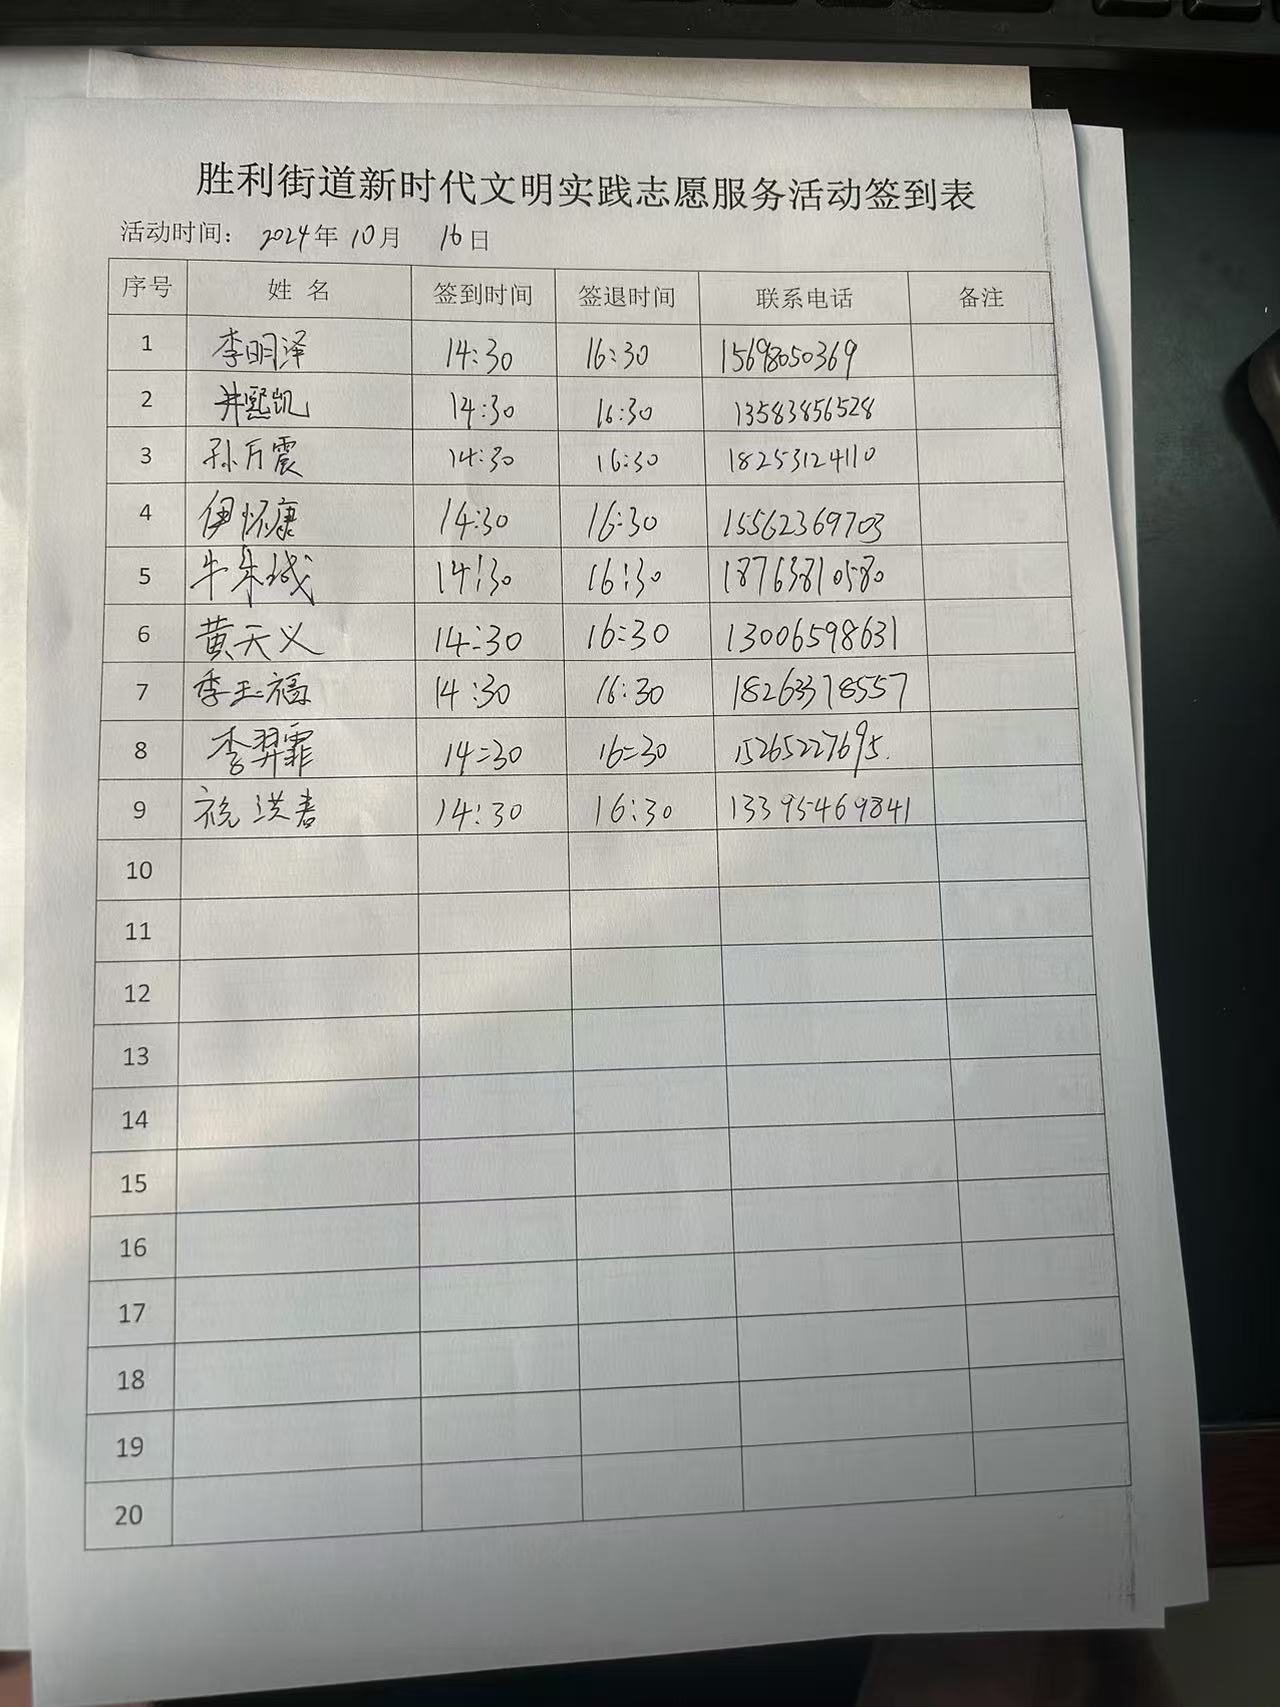 胜利街道新时代文明实践志愿服务活动签到表
活动时间： 2024年 10月 16日
序号 姓 名 签到时间 签退时间 联系电话 备注
1 李明泽 14:30 16:30 15698050369
2 井熙凯 14:30 16:30 13583856528
3 孙万震 14:30 16:30 18253124110
4 伊怀康 14:30 16:30 15562369703
5 牛朱城 14:30 16:30 18763810580
6 黄天义 14:30 16:30 13006598631
7 季玉福 14:30 16:30 18263378557
8 李羿霏 14:30 16:30 15265227695.
9 祝洪春 14:30 16:30 13395469841
10
11
12
13
14
15
16
17
18
19
20